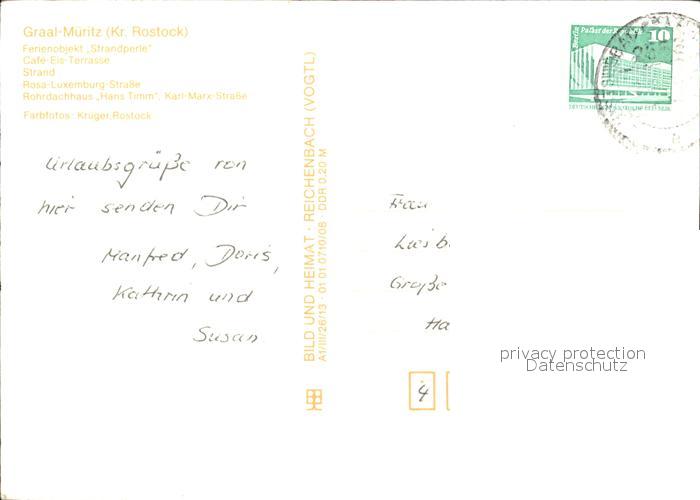 Graal-Müritz (Kr. Rostock)
Ferienobjekt „Strandperle"
Café-Eis-Terrasse
Strand
Rosa-Luxemburg-Straße
Rohrdachhaus „Hans Timm", Karl-Marx-Straße
Farbfotos: Krüger, Rostock
Urlaubsgrüße von
hier senden Dir
Manfred, Doris,
Kathrin und
Susan
BILD UND HEIMAT · REICHENBACH (VOGTL)
A1/III/26/13 · 01 01 0710/08 · DDR 0,20 M
Berlin Palast der Republik 10
Frau
Große
Ha
4
privacy protection
Datenschutz